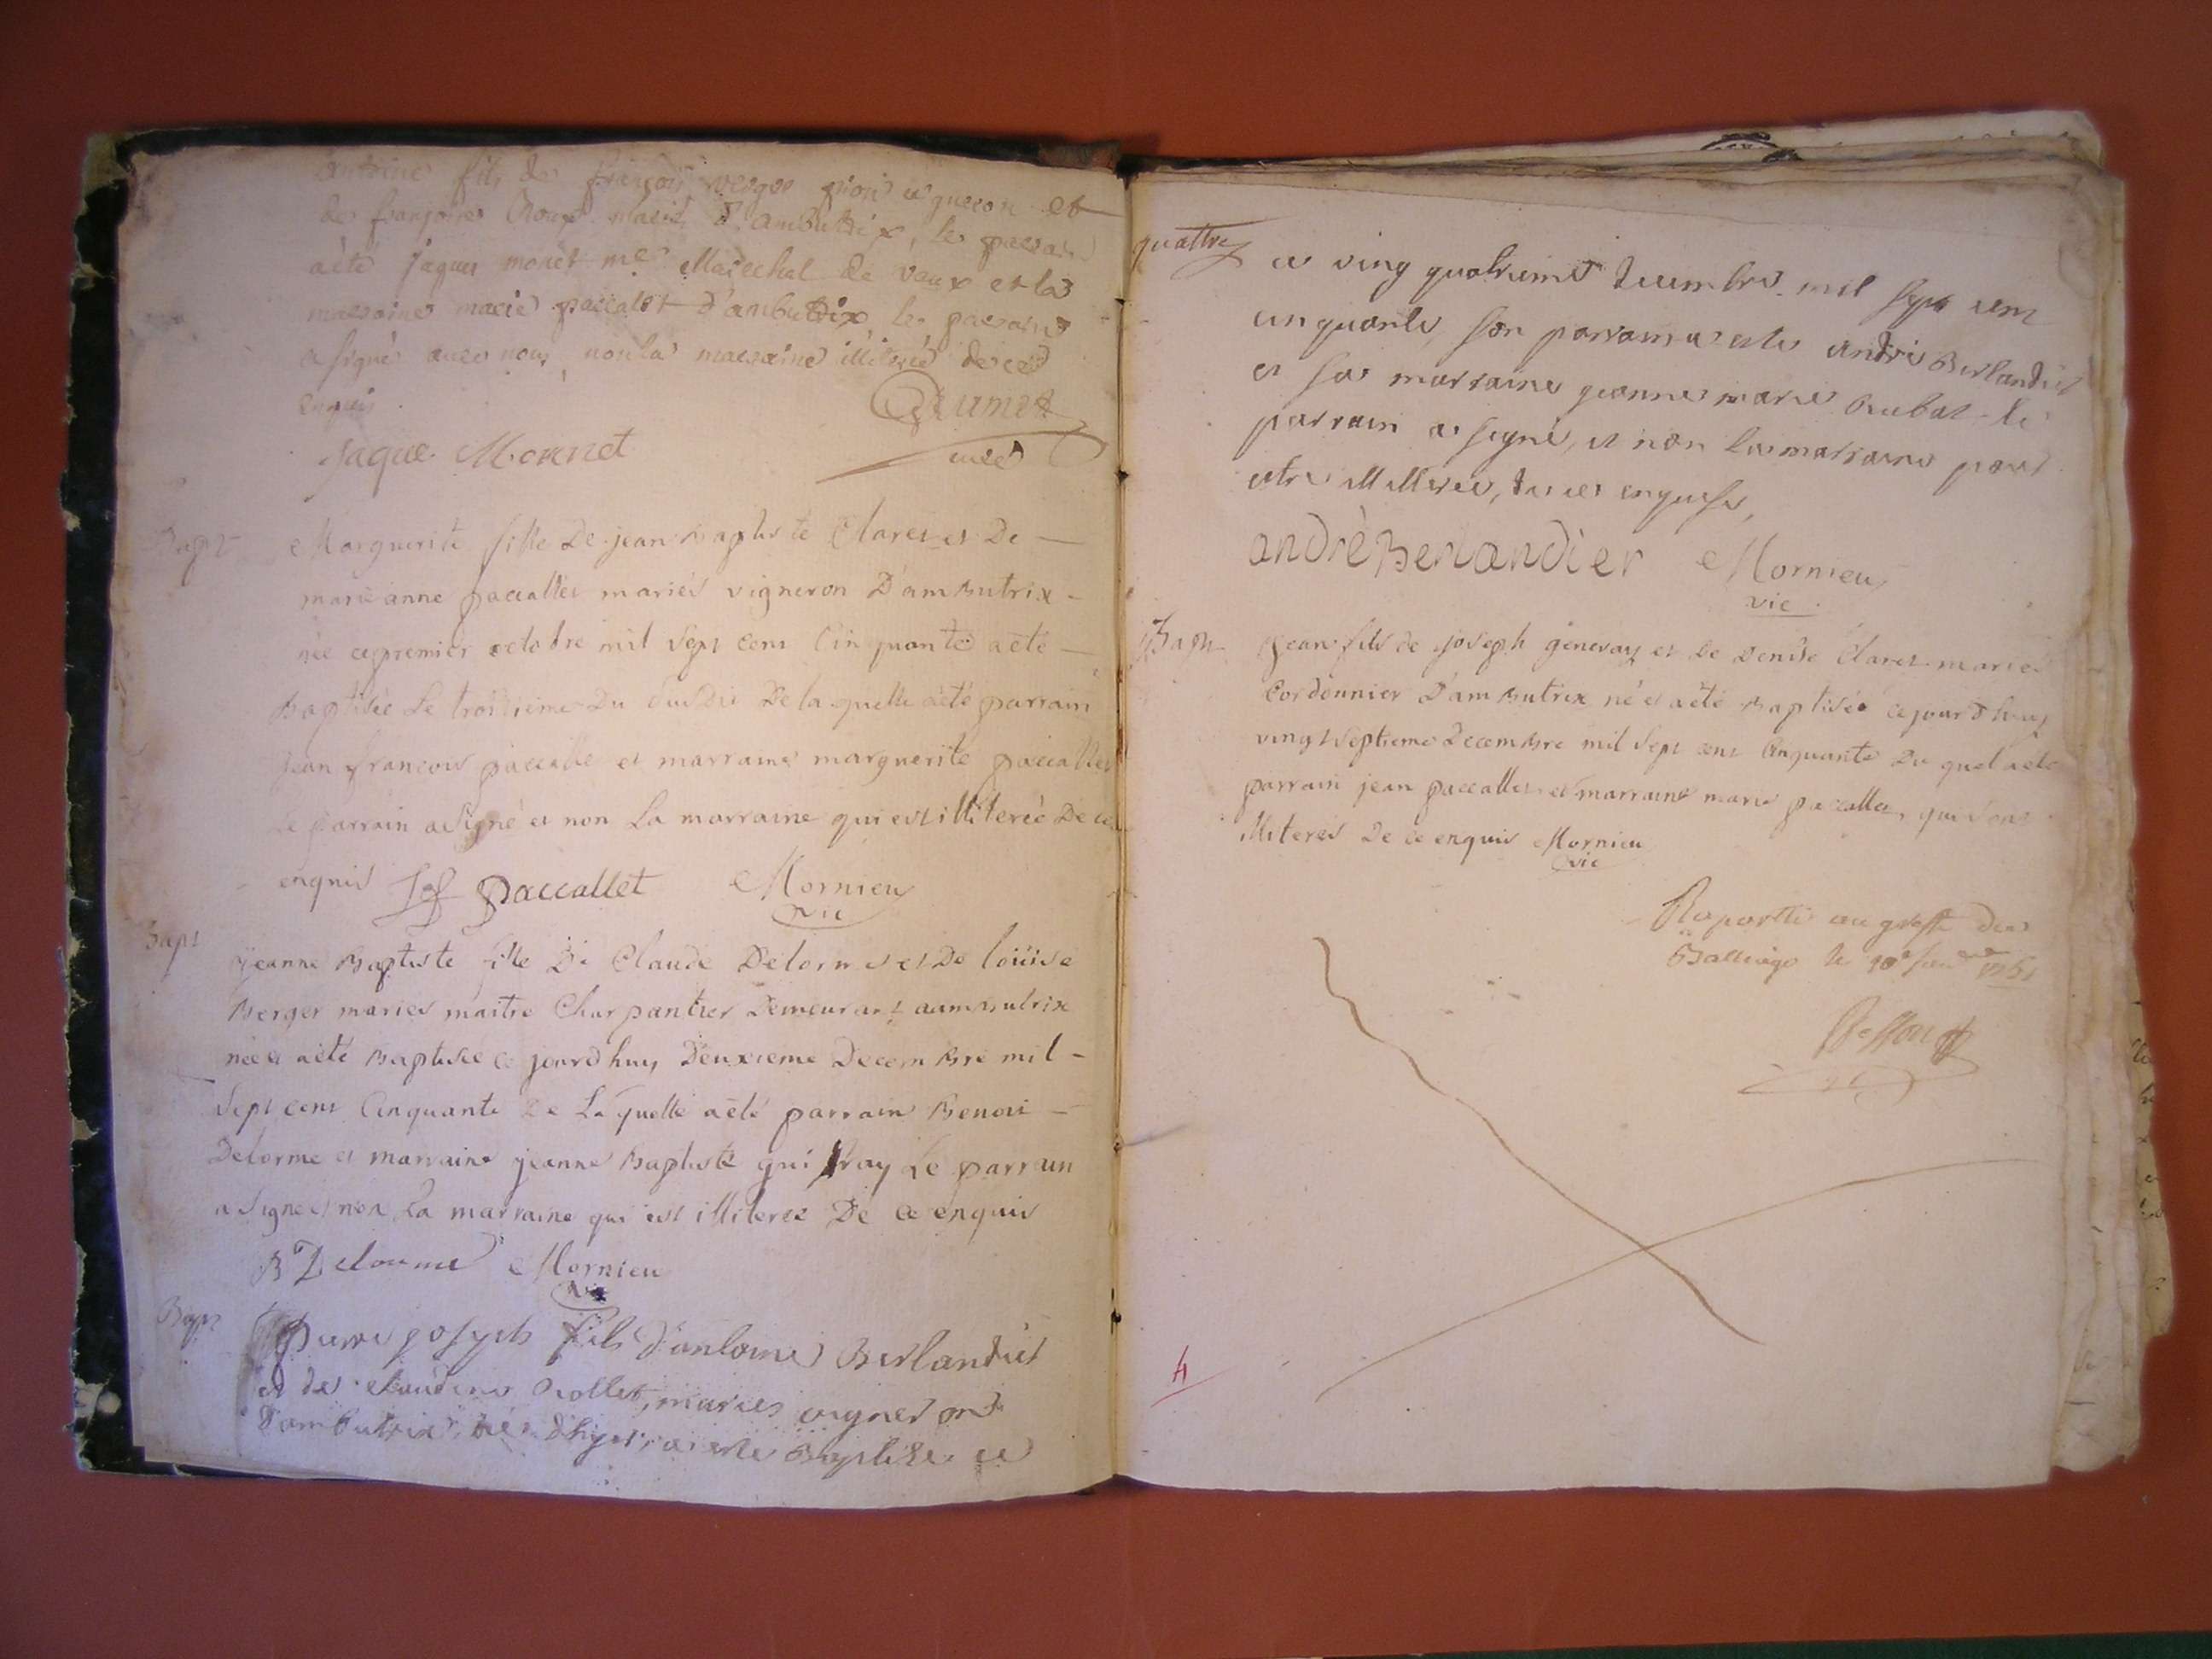 antoine fils de françois verger vigneron et
de françoise Roux mariés d'ambutrix, le parrain
a été jaques monet me Marechal de vaux et la
marraine marie paccalet d'ambutrix, le parrain
a signé avec nous, non la marraine illiterée de ce
enquis.
Jaque Monnet
curé
Bapt
Marguerite fille De jean Baptiste Claret et De
marie anne paccallet mariés vigneron D'amButrix
née ce premier octobre mil sept cent Cinquante a été
Baptisée Le troisieme Du susdit De la quelle a été parrain
jean francois paccallet et marraine marguerite paccallet
Le parrain a signé et non La marraine qui est illiterée De ce
enquis Jf paccallet Mornieu
vic
Bapt
jeanne Baptiste fille De Claude Delorme et De loüise
Berger mariés maitre Charpantier Demeurant a amButrix
née et a été Baptisée ce jourd'huy Deuxieme DecemBre mil
Sept cent Cinquante De La quelle a été parrain Benoi
Delorme et marraine jeanne Baptiste guifray Le parrain
a signé et non La marraine qui est illiterée De ce enquis
B Delorme Mornieu
vic
Bapt
pierre joseph fils d'antoine Berlandier
et de claudine Rollet, mariés vigneron
d'ambutrix, né d'hyer, a este Baptisé ce
quattre
ce ving quatrieme decembre mil sept cent
cinquante, son parrain a esté andré Berlandier
et sa marraine jeanne marie Rubat le
parrain a signé, et non la marraine pour
estre illitterée, de ce enquise,
andrè Berlandier Mornieu
vic
Bapt
Jean fils de joseph generay et De Denise Claret mariés
Cordonnier D'amButrix né et a été Baptisée ce jourd'huy
vingt septieme DecemBre mil sept cent Cinquante Du quel a été
parrain jean paccallet et marraine marie paccallet, qui sont
illiterés De ce enquis Mornieu
vic
Raportté au greffe du
Balliage le 10e janv 1751
4